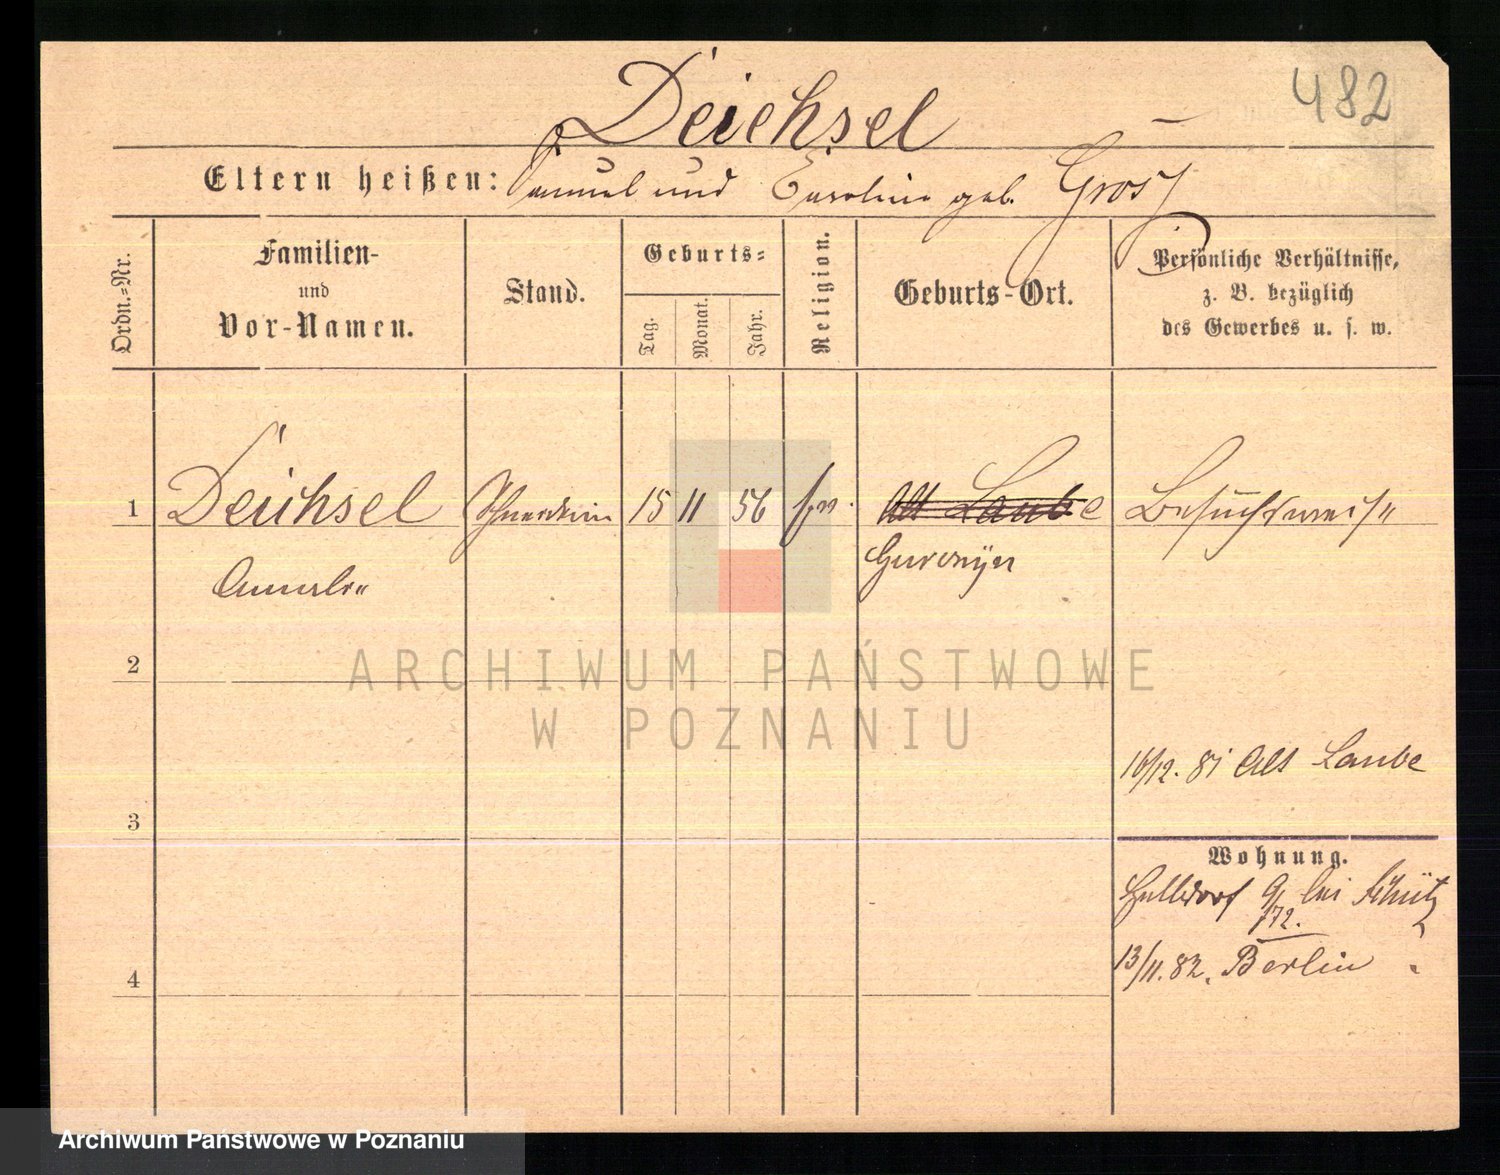 482
Deichsel
Eltern heißen: Samuel und Caroline geb. Gros
Ordn.-Nr.
Familien-
und
Vor-Namen.
Stand.
Geburts-
Tag.
Monat.
Jahr.
Religion.
Geburts-Ort.
Persönliche Verhältnisse,
z. B. bezüglich
des Gewerbes u. s. w.
1 Deichsel Schneiderin 15 11 56 ev. Alt Laube Besuchsweise
2
ARCHIWUM PAŃSTWOWE
W POZNANIU
16/12. 81 Alt Laube
3
Wohnung.
bei Schütz
172.
13/11. 82. Berlin
4
Archiwum Państwowe w Poznaniu